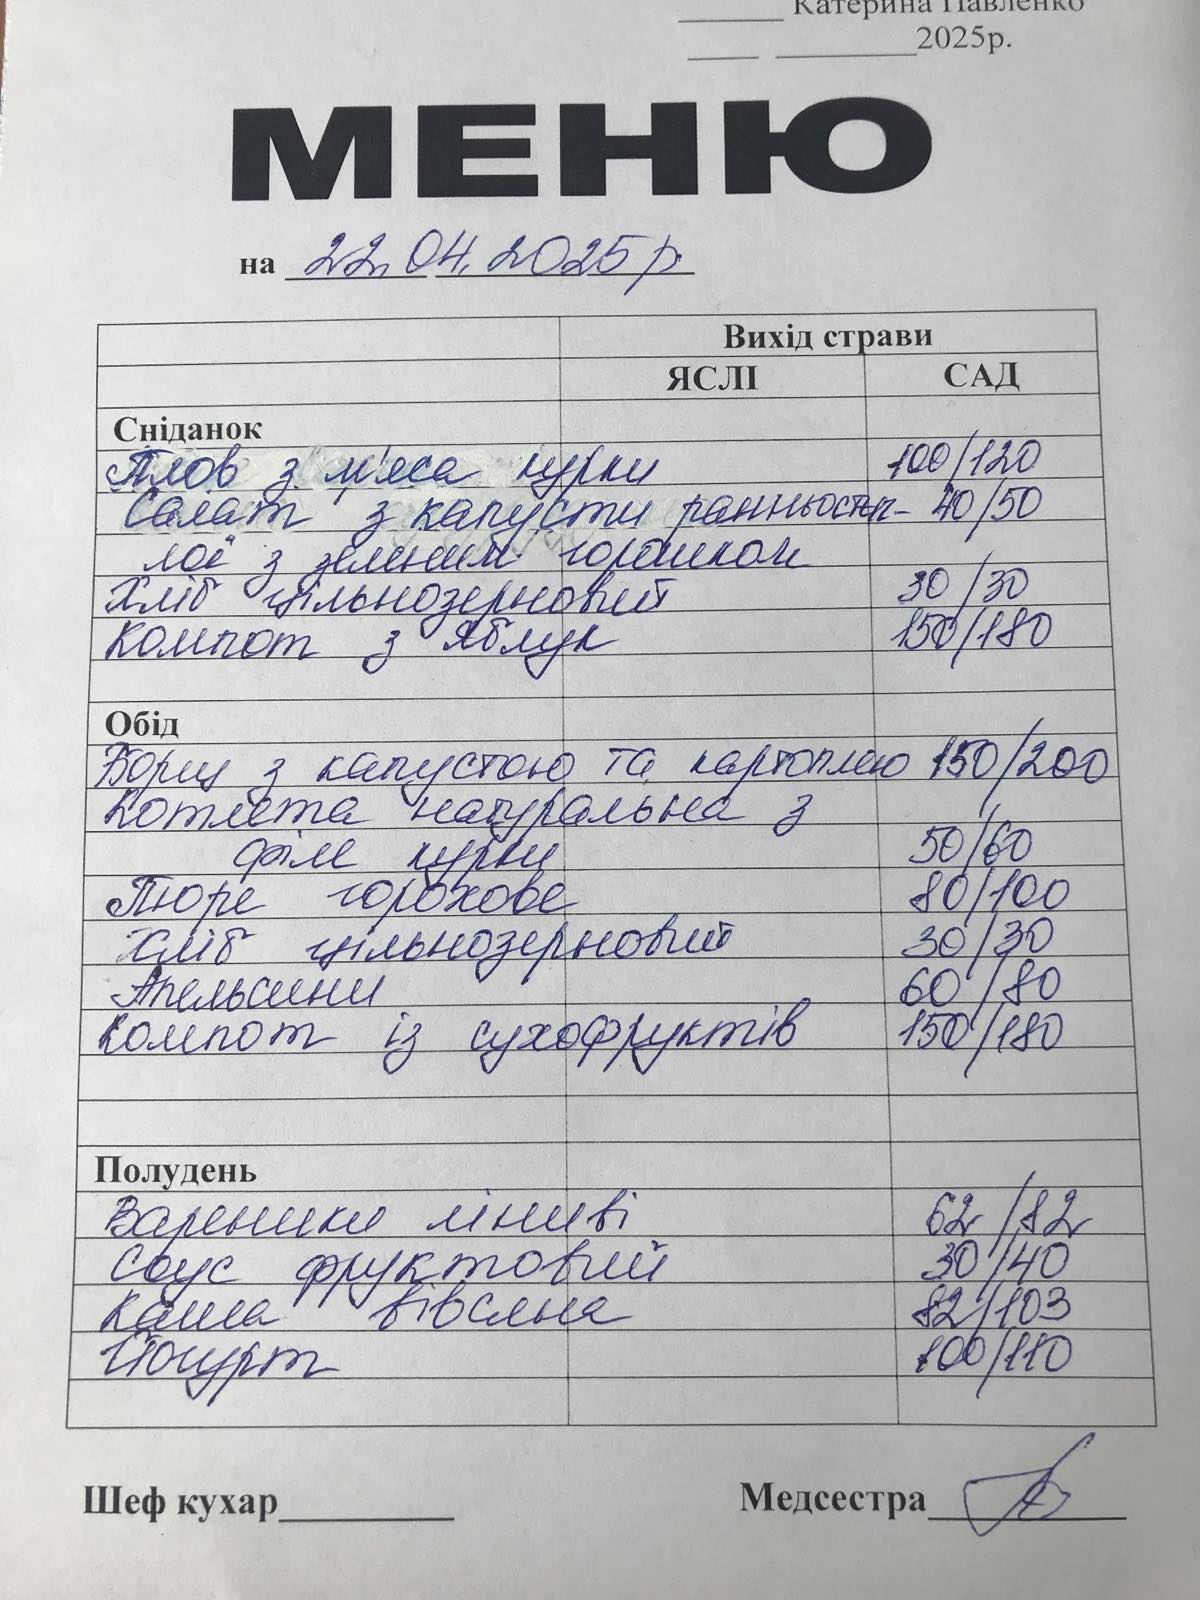 Катерина Павленко
2025р.
МЕНЮ
на 22.04.2025р.
Вихід страви
ЯСЛІ САД
Сніданок
Плов з м'яса курки 100/120
Салат з капусти ранньостиг- 40/50
лої з зеленим горошком
Хліб цільнозерновий 30/30
Компот з яблук 150/180
Обід
Борщ з капустою та картоплею 150/200
Котлета натуральна з
філе курки 50/60
Пюре горохове 80/100
Хліб цільнозерновий 30/30
Апельсини 60/80
Компот із сухофруктів 150/180
Полудень
Вареники ліниві 62/82
Соус фруктовий 30/40
Каша вівсяна 82/103
Йогурт 100/110
Шеф кухар Медсестра